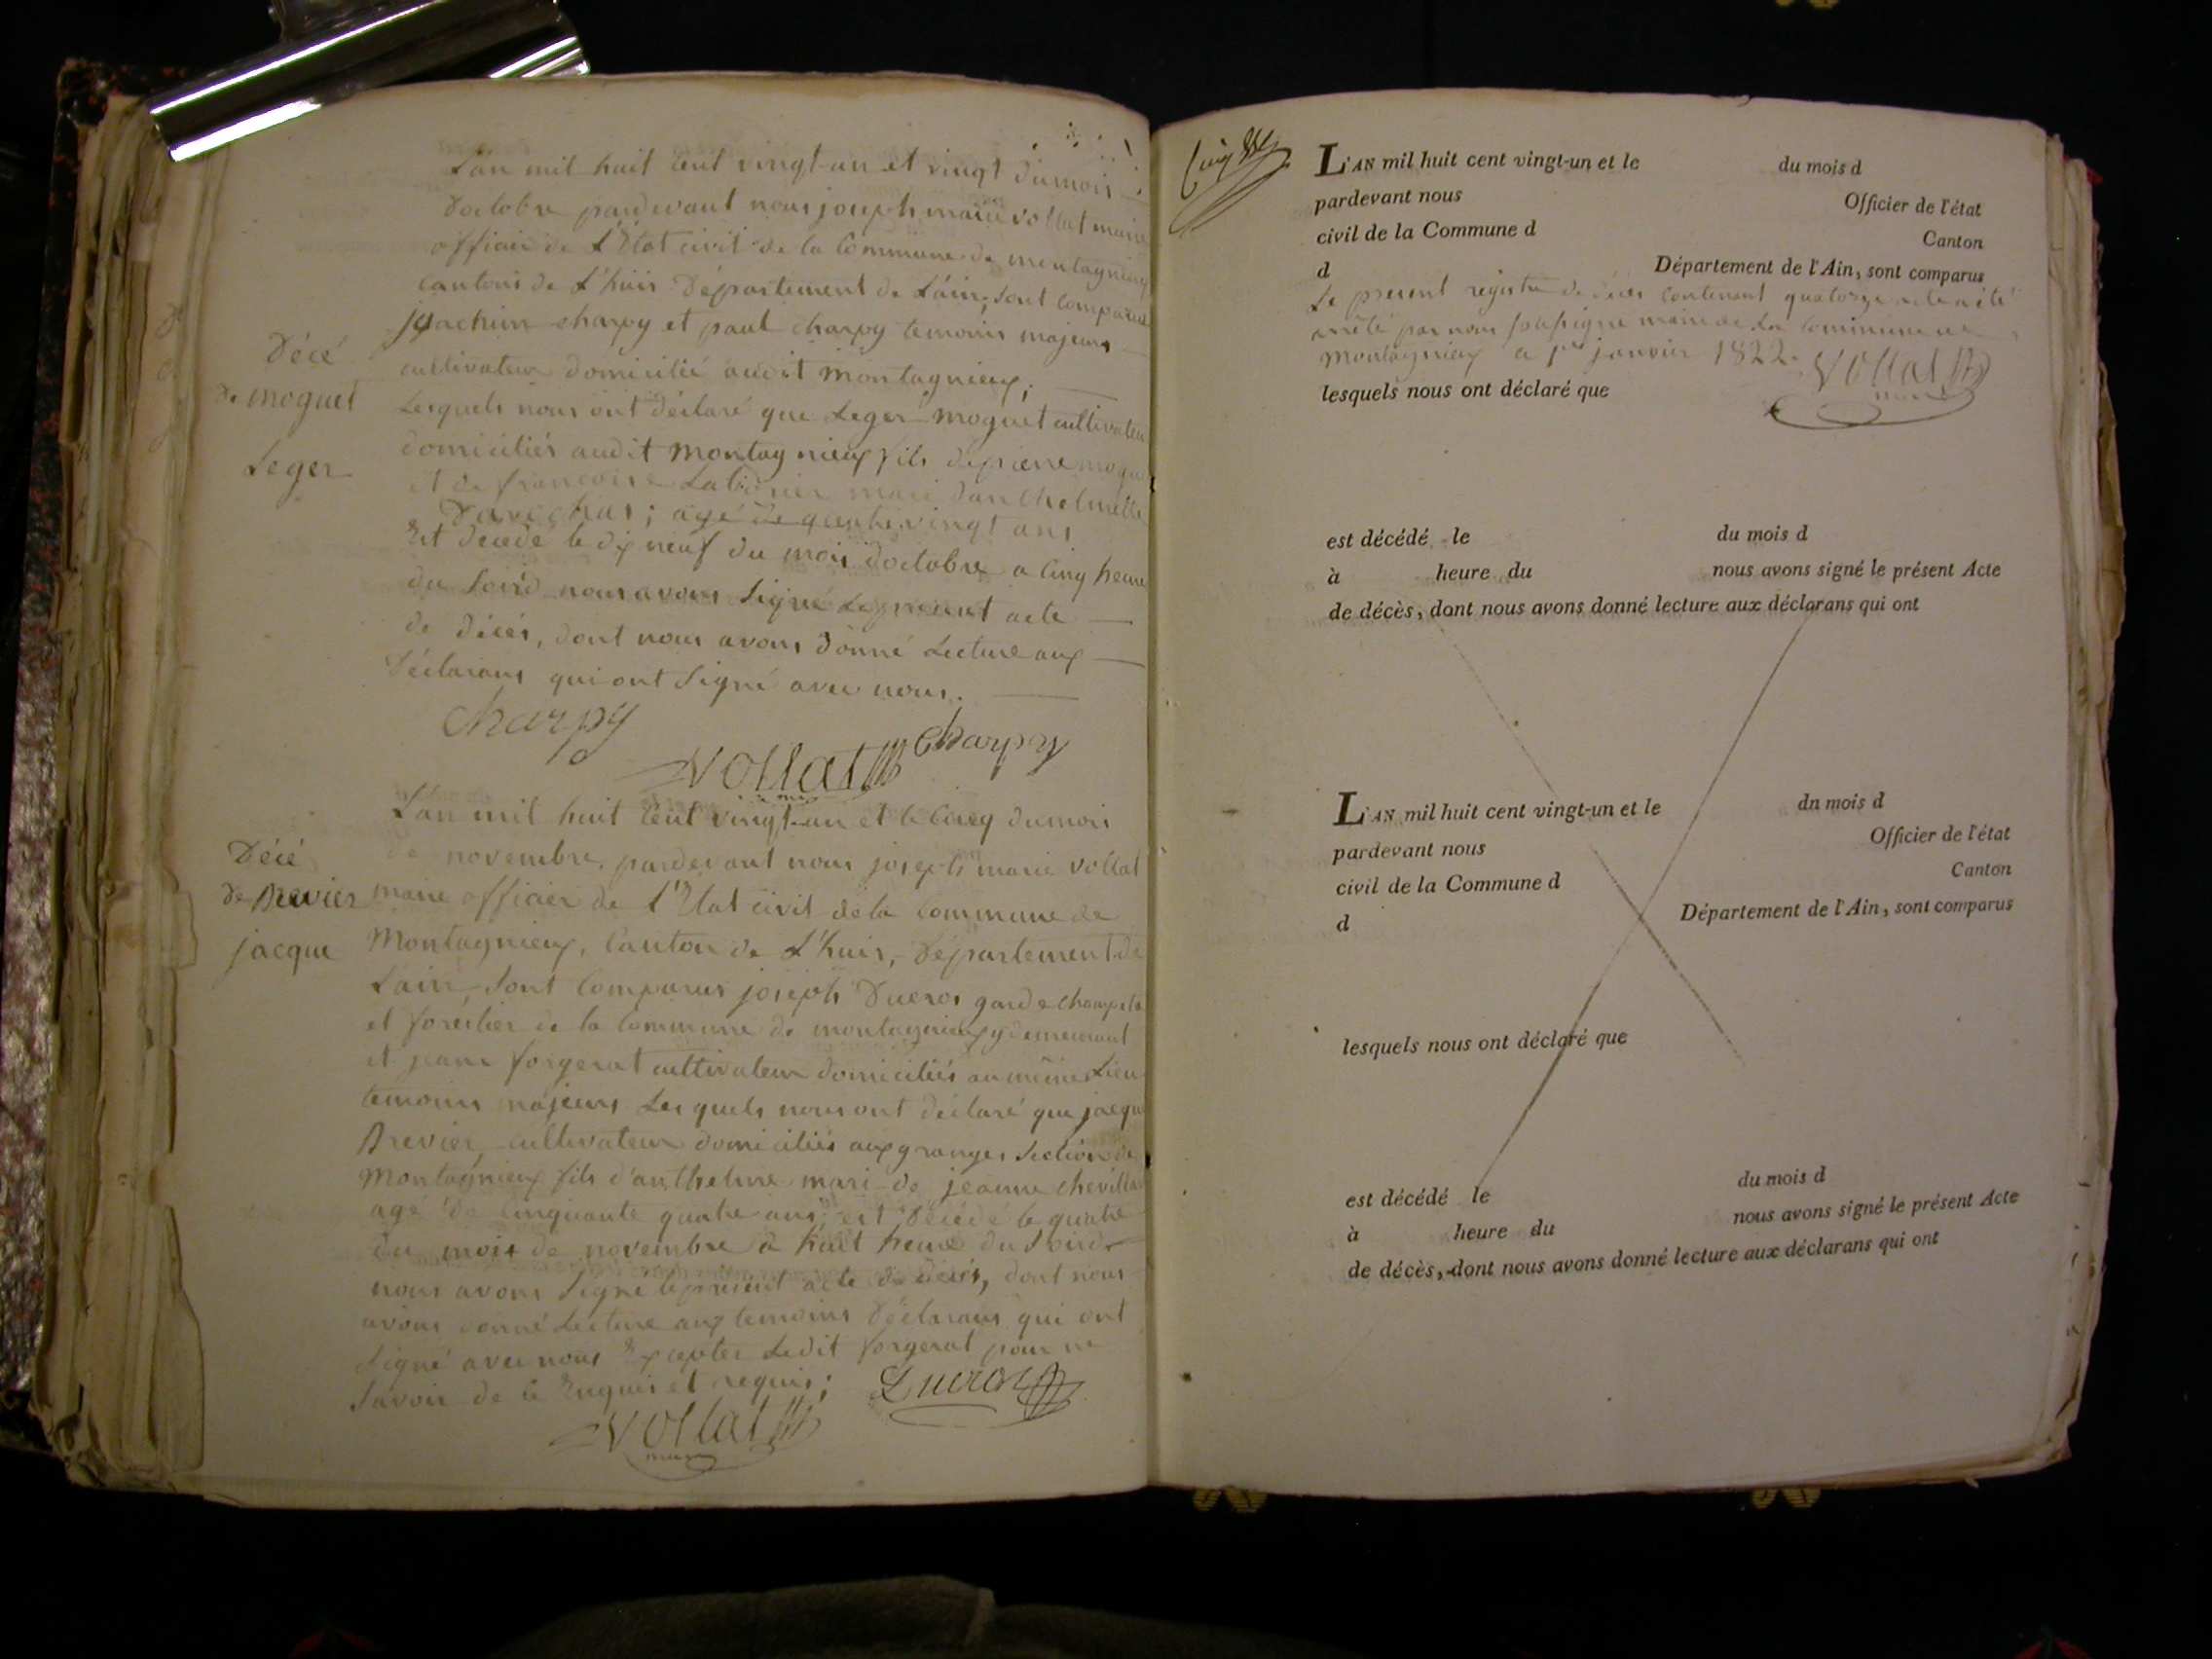 L'an mil huit cent vingt-un et vingt du mois
D'octobre pardevant nous joseph marie vollat maire
officier de L'Etat civil de la Commune de montagnieux
cantons de L'huis Département de Lain, sont comparus
joachim charpy et paul charpy temoins majeurs
Décé
cultivateur domicilié audit montagnieux;
de moguet
Lesquels nous ont déclaré que Leger moguet cultivateur
Leger
domiciliés audit montagnieux fils de pierre moguet
et de francoise mari
agé de quatrevingt ans
Est decedé le dix neuf du mois doctobre a cinq heure
du Soird nous avons Signé Le present acte
de décés, dont nous avons donné Lecture aux
Déclarans qui ont Signé avec nous.
Charpy
Charpy
Vollat
maire
L'an mil huit Cent vingt-un et le Cinq du mois
Décé
de novembre, pardevant nous joseph marie Vollat
de Drevier
maire officier de L'Etat civil de la Commune de
jacque
Montagnieux, Canton de L'huis, Département de
Lain, Sont Comparus joseph Ducros garde champetre
et forestier de la Commune de montagnieux y demeurant
et forgerat cultivateur domiciliés au même Lieu
temoins majeurs Lesquels nous ont déclaré que jacque
Drevier, cultivateur domiciliés aux granges Section de
Montagnieux fils d'anthelme mari de jeanne
agé de cinquante quatre ans, est Décédé le quatre
du mois de novembre à huit heure du Soird
nous avons Signé le present acte de décés, dont nous
avons donné Lecture aux temoins Déclarans qui ont
Signé avec nous Excepter Ledit forgerat pour ne
Savoir de ce Enquis et requis;
Ducros
Vollat
maire
L'AN mil huit cent vingt-un et le du mois d
pardevant nous Officier de l'état
civil de la Commune d Canton
d Département de l'Ain, sont comparus
Le present registre de décés contenant quatorze acte a été
arrêté par nous soussigné maire de La Commune de
Montagnieux a 1er janvier 1822. Vollat
maire
lesquels nous ont déclaré que
est décédé le du mois d
à heure du nous avons signé le présent Acte
de décès, dont nous avons donné lecture aux déclarans qui ont
L'AN mil huit cent vingt-un et le dn mois d
pardevant nous Officier de l'état
civil de la Commune d Canton
d Département de l'Ain, sont comparus
lesquels nous ont déclaré que
est décédé le du mois d
à heure du nous avons signé le présent Acte
de décès, dont nous avons donné lecture aux déclarans qui ont